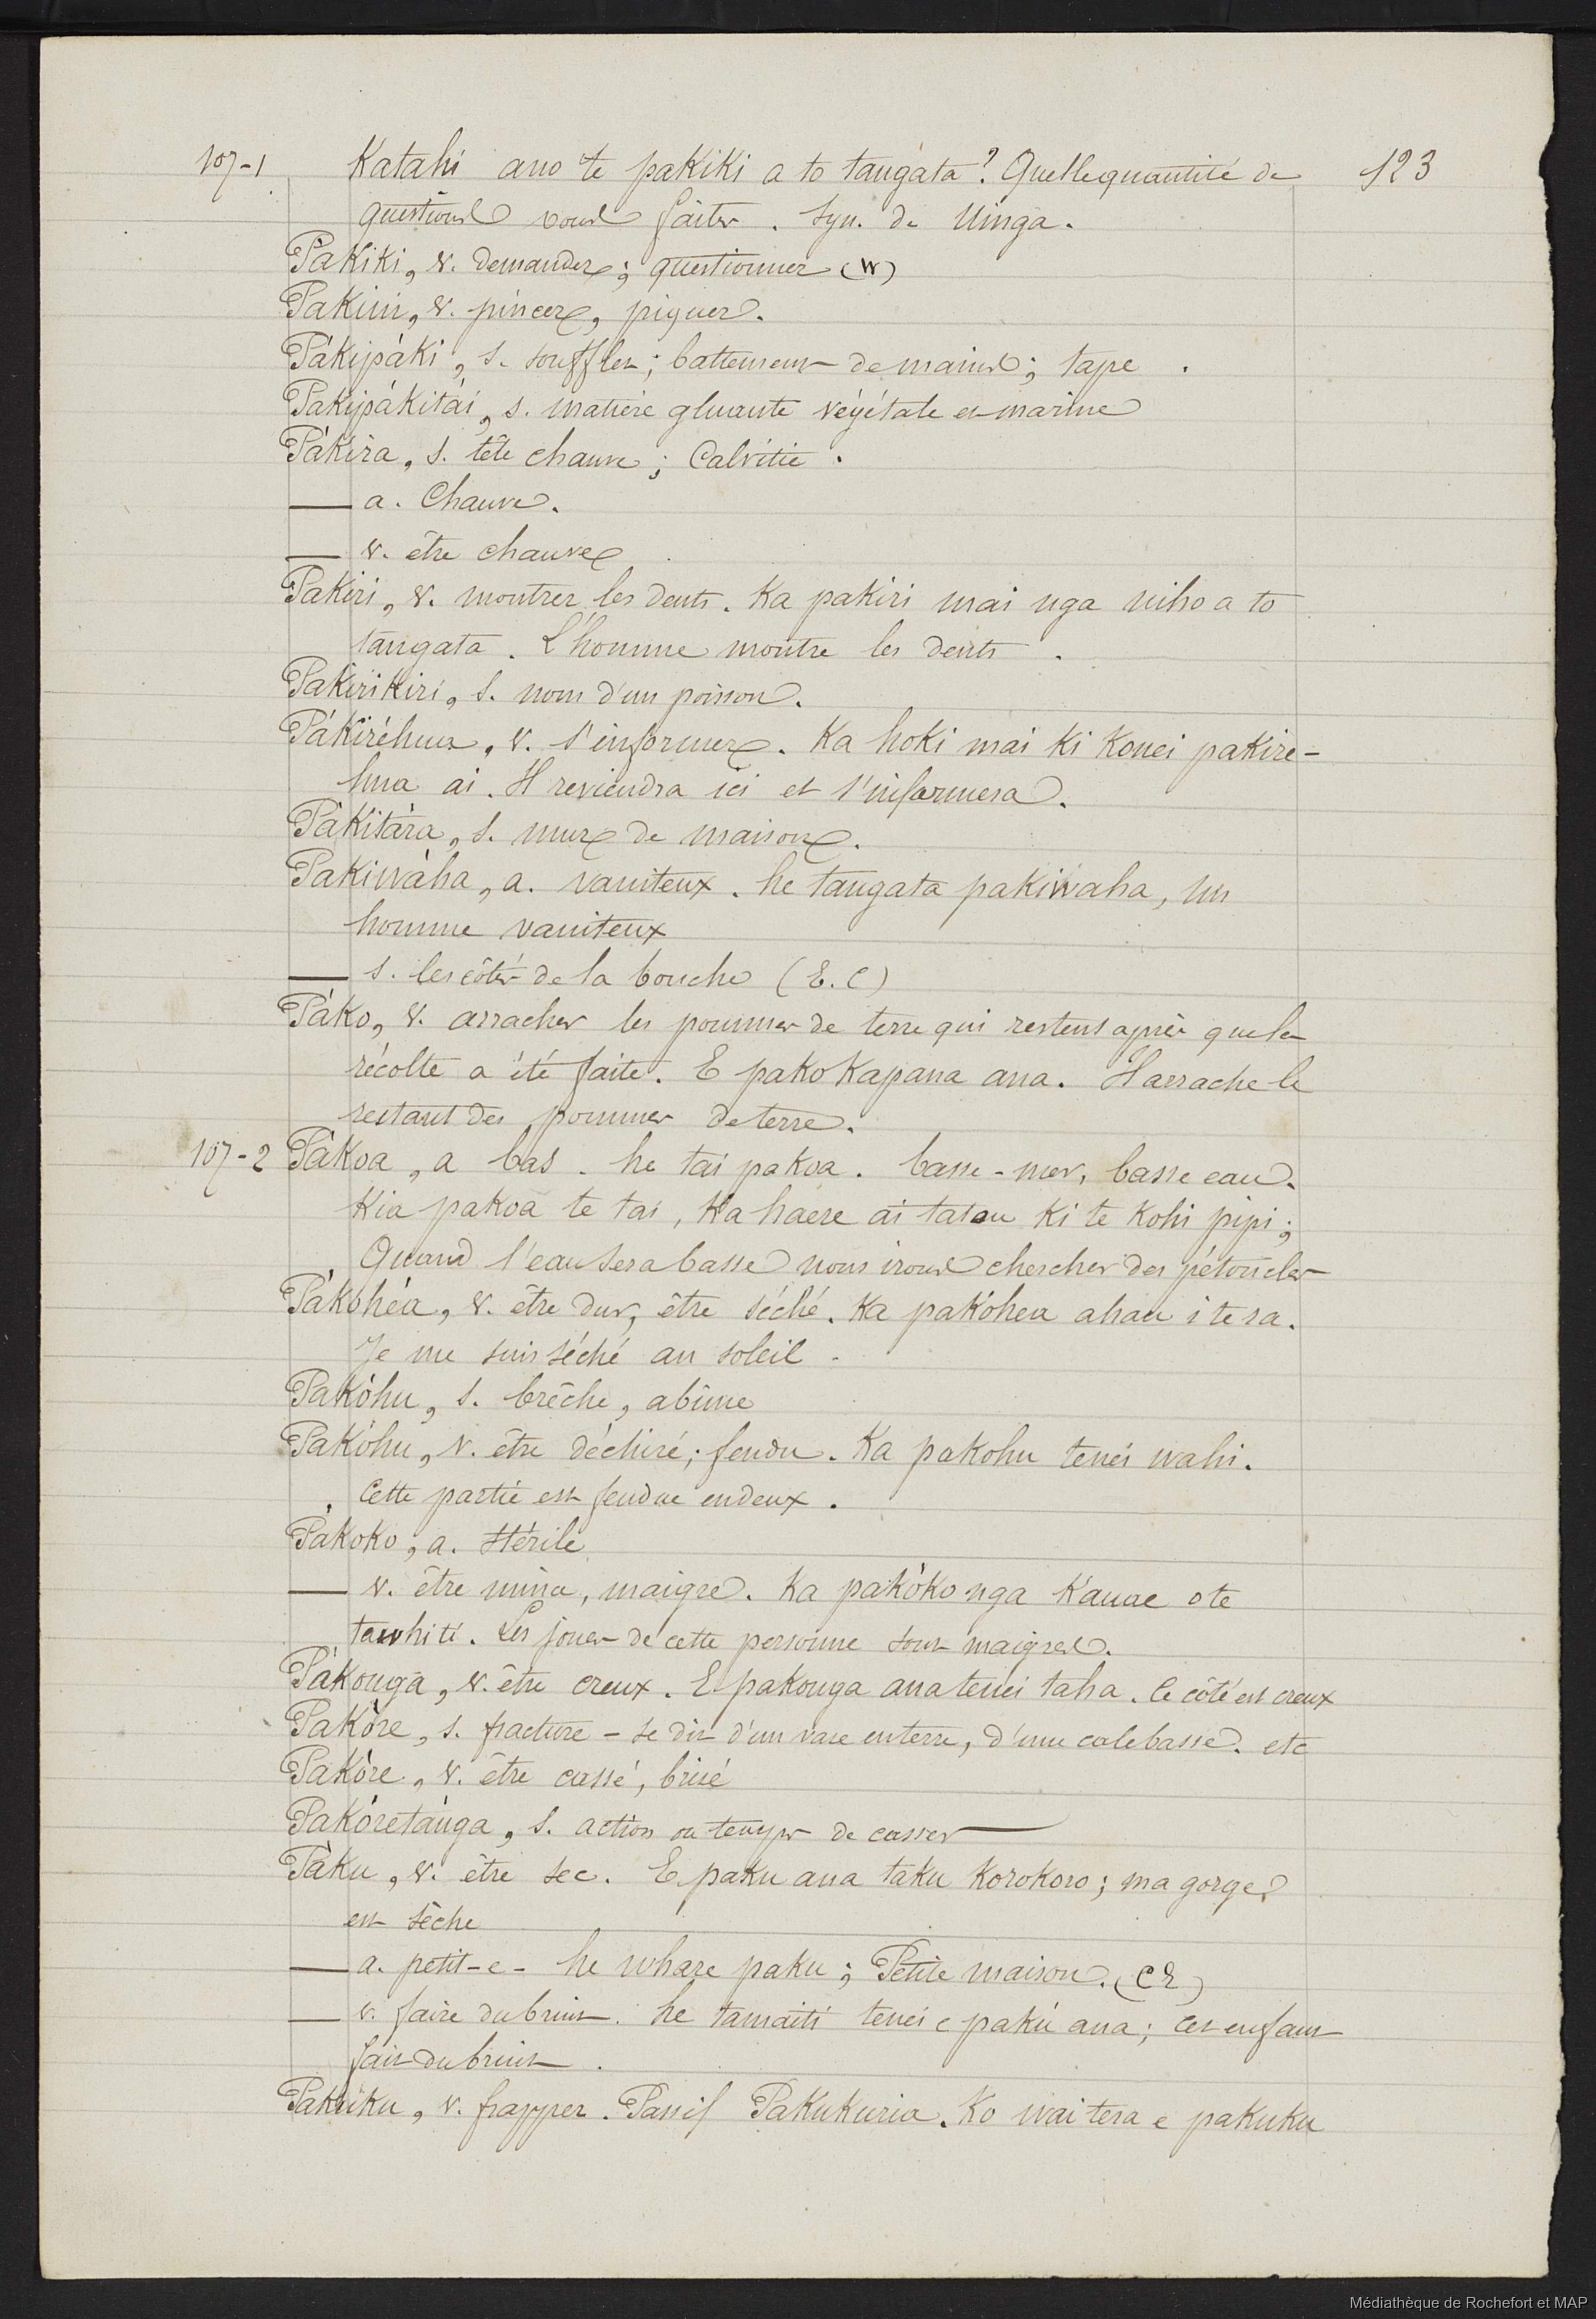 107-1 Katahi ano te pakiki a to tangata? Quelle quantité de 123
questions vous faites. Syn. de Uinga.
Pàkiki, v. demander; questionner (W)
Pakini, v. pincer, piquer.
Pákipáki, s. soufflet; battement de mains; tape.
Pakipákitái, s. matière gluante végétale et marine
Pákira, s. tête chauve; Calvitie.
— a. Chauve.
— v. être chauve
Pakiri, v. montrer les dents. Ka pakiri mai nga niho a to
tangata. L'homme montre les dents.
Pakirikiri, s. nom d'un poisson.
Pákiréhua, v. s'informer. Ka hoki mai ki konei pakire-
hua ai. Il reviendra ici et s'informera.
Pàkitàra, s. mur de maison.
Pakiwàha, a. vaniteux. he tangata pakiwaha, un
homme vaniteux
— s. les côtés de la bouche (E.C)
Páko, v. arracher les pommes de terre qui restent après que la
récolte a été faite. E pako kapana ana. Il arrache le
restant des pommes de terre.
107-2 Pàkoa, a bas. he tai pakoa. basse-mer, basse eau.
Kia pakoa te tai, Ka haere ai tatou ki te kohi pipi;
Quand l'eau sera basse nous irons chercher des pétoncles
Pákohéa, v. être dur, être séché. Ka pakohea ahau i te ra.
Je me suis séché au soleil.
Pakóhu, s. brêche, abîme
Pakóhu, v. être déchiré; fendu. Ka pakohu tenei wahi.
Cette partie est fendue en deux.
Pàkoko, a. stérile
— v. être mince, maigre. Ka pakóko nga kauae o te
tawhiti. Les joues de cette personne sont maigres.
Pàkonga, v. être creux. E pakonga ana tenei taha. Ce côté est creux
Pakòre, s. fracture - se dit d'un vase en terre, d'une calebasse. etc
Pakòre, v. être cassé, brisé
Pakòretánga, s. action ou temps de casser
Pàku, v. être sec. E paku ana taku korokoro; ma gorge
est sèche
— a. petit-e- he whare paku; Petite maison. (CR)
— v. faire du bruit. he tamaiti tenei e pakú ana; cet enfant
fait du bruit.
Pakúku, v. frapper. Passif Pakukuria. Ko wai tera e pakuku
Médiathèque de Rochefort et MAP